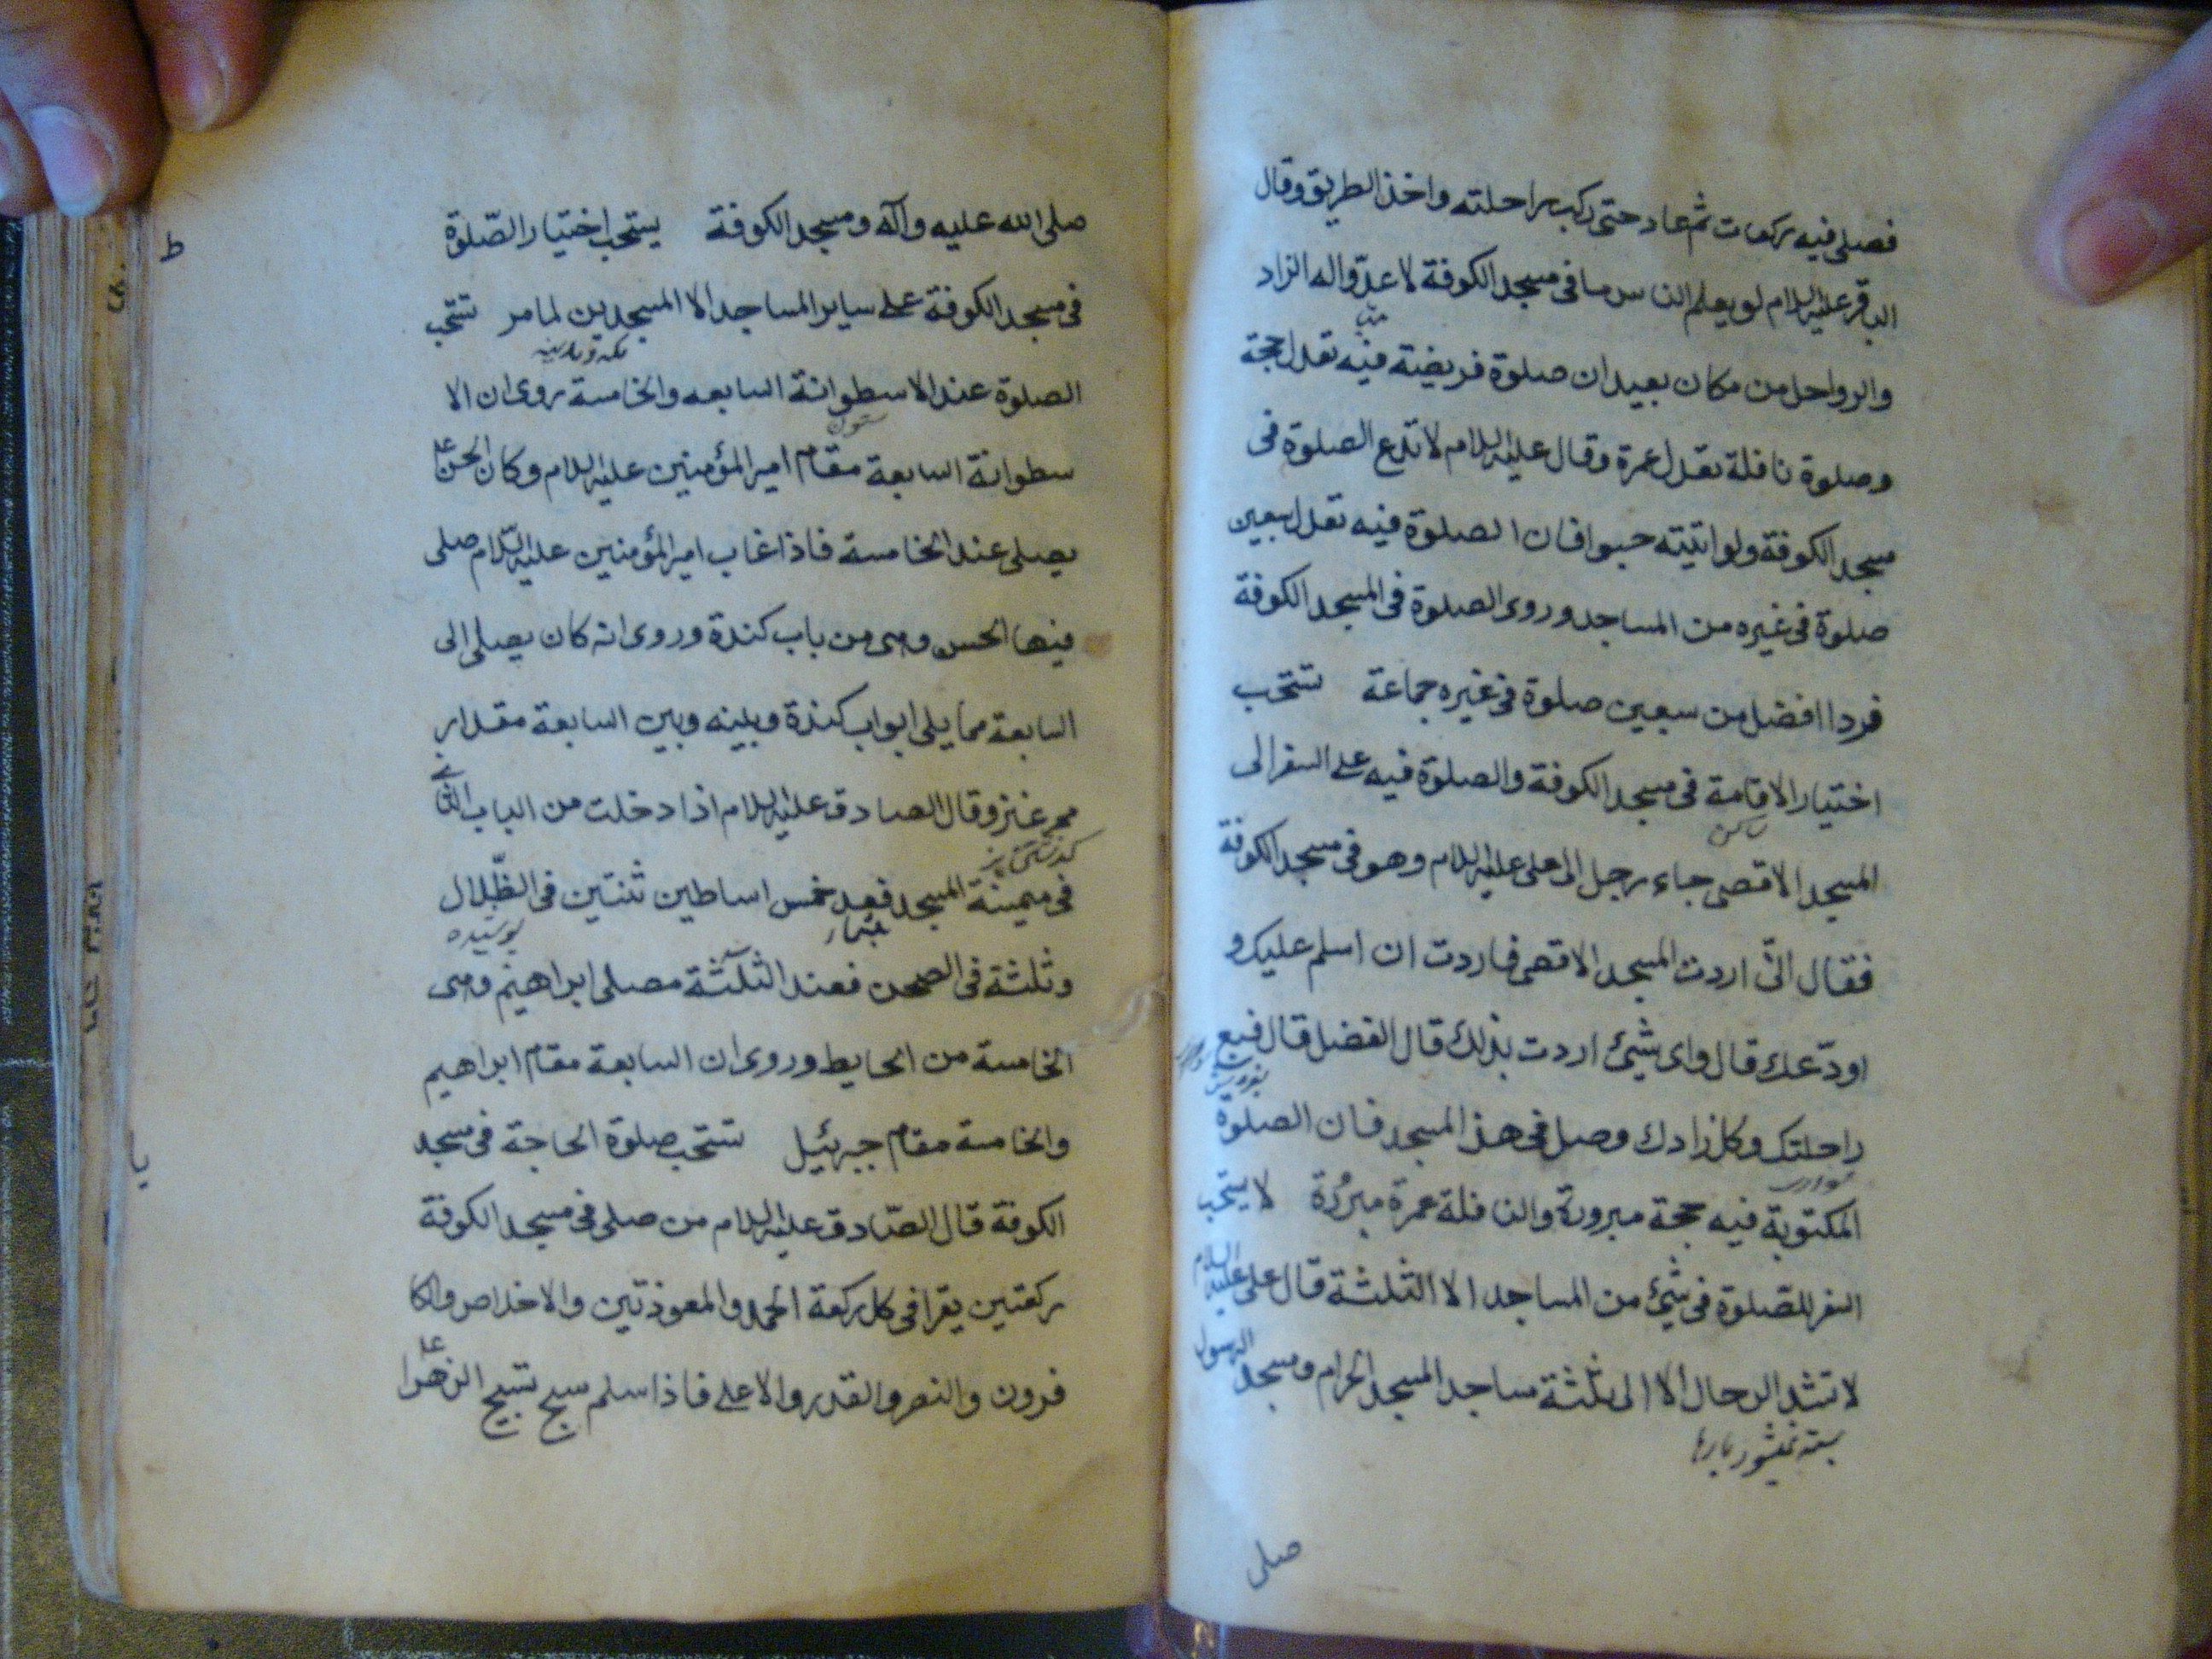 فصلى فيه ركعات ثم عاد حتى ركب راحلته واخذ الطريق وقال
الباقر عليه السلام لو يعلم الناس ما فى مسجد الكوفة لاعدّوا له الزاد
والرواحل من مكان بعيد ان صلوة فريضة فيه تعدل حجة
وصلوة نافلة تعدل عمرة وقال عليه السلام لا تدع الصلوة فى
مسجد الكوفة ولو اتيته حبوا فان الصلوة فيه تعدل سبعين
صلوة فى غيره من المساجد وروى الصلوة فى المسجد الكوفة
فردا افضل من سبعين صلوة فى غيره جماعة تستحب
اختيار الاقامة فى مسجد الكوفة والصلوة فيه على السفر الى
المسجد الاقصى جاء رجل الى على عليه السلام وهو فى مسجد الكوفة
فقال انّى اردت المسجد الاقصى فاردت ان اسلم عليك و
اودّعك قال واى شيئ اردت بذلك قال الفضل قال فبع
بفروش
راحلتك وكل زادك وصل فى هذا المسجد فان الصلوة
المكتوبة فيه حجة مبرورة والنافلة عمرة مبرُرة لا يستحب
السفر للصّلوة فى شيئ من المساجد الا الثلثة قال على عليه السلام
لا تشد الرحال الا الى ثلثة مساجد المسجد الحرام ومسجد الرسول
بسته نميشود بارها
صلى
صلى الله عليه وآله ومسجد الكوفة يستحب اختيار الصّلوة
فى مسجد الكوفة على ساير المساجد الا المسجدين لما مر تستحب
مكه و مدينه
الصلوة عند الاسطوانة السابعه والخامسة روى ان الا
ستون
سطوانة السابعة مقام امير المؤمنين عليه السلام وكان الحسن ع
يصلى عند الخامسة فاذا غاب امير المؤمنين عليه السّلام صلى
فيها الحسن وهى من باب كندة وروى انه كان يصلى الى
السابعة مما يلى ابواب كندة وبينه وبين السابعة مقدار
ممر عنز وقال الصادق عليه السلام اذا دخلت من الباب الثانى
فى ميمنة المسجد فعد خمس اساطين ثنتين فى الظّلال
بشمار
پوشيده
وثلثة فى الصحن فعند الثلثة مصلى ابراهيم وهى
الخامسة من الحايط وروى ان السابعة مقام ابراهيم
والخامسة مقام جبرئيل تستحب صلوة الحاجة فى مسجد
الكوفة قال الصّادق عليه السلام من صلى فى مسجد الكوفة
ركعتين يقرا فى كل ركعة الحمد والمعوذتين والاخلاص والكا
فرون والنصر والقدر والاعلى فاذا سلم سبح تسبيح الزهرا ع